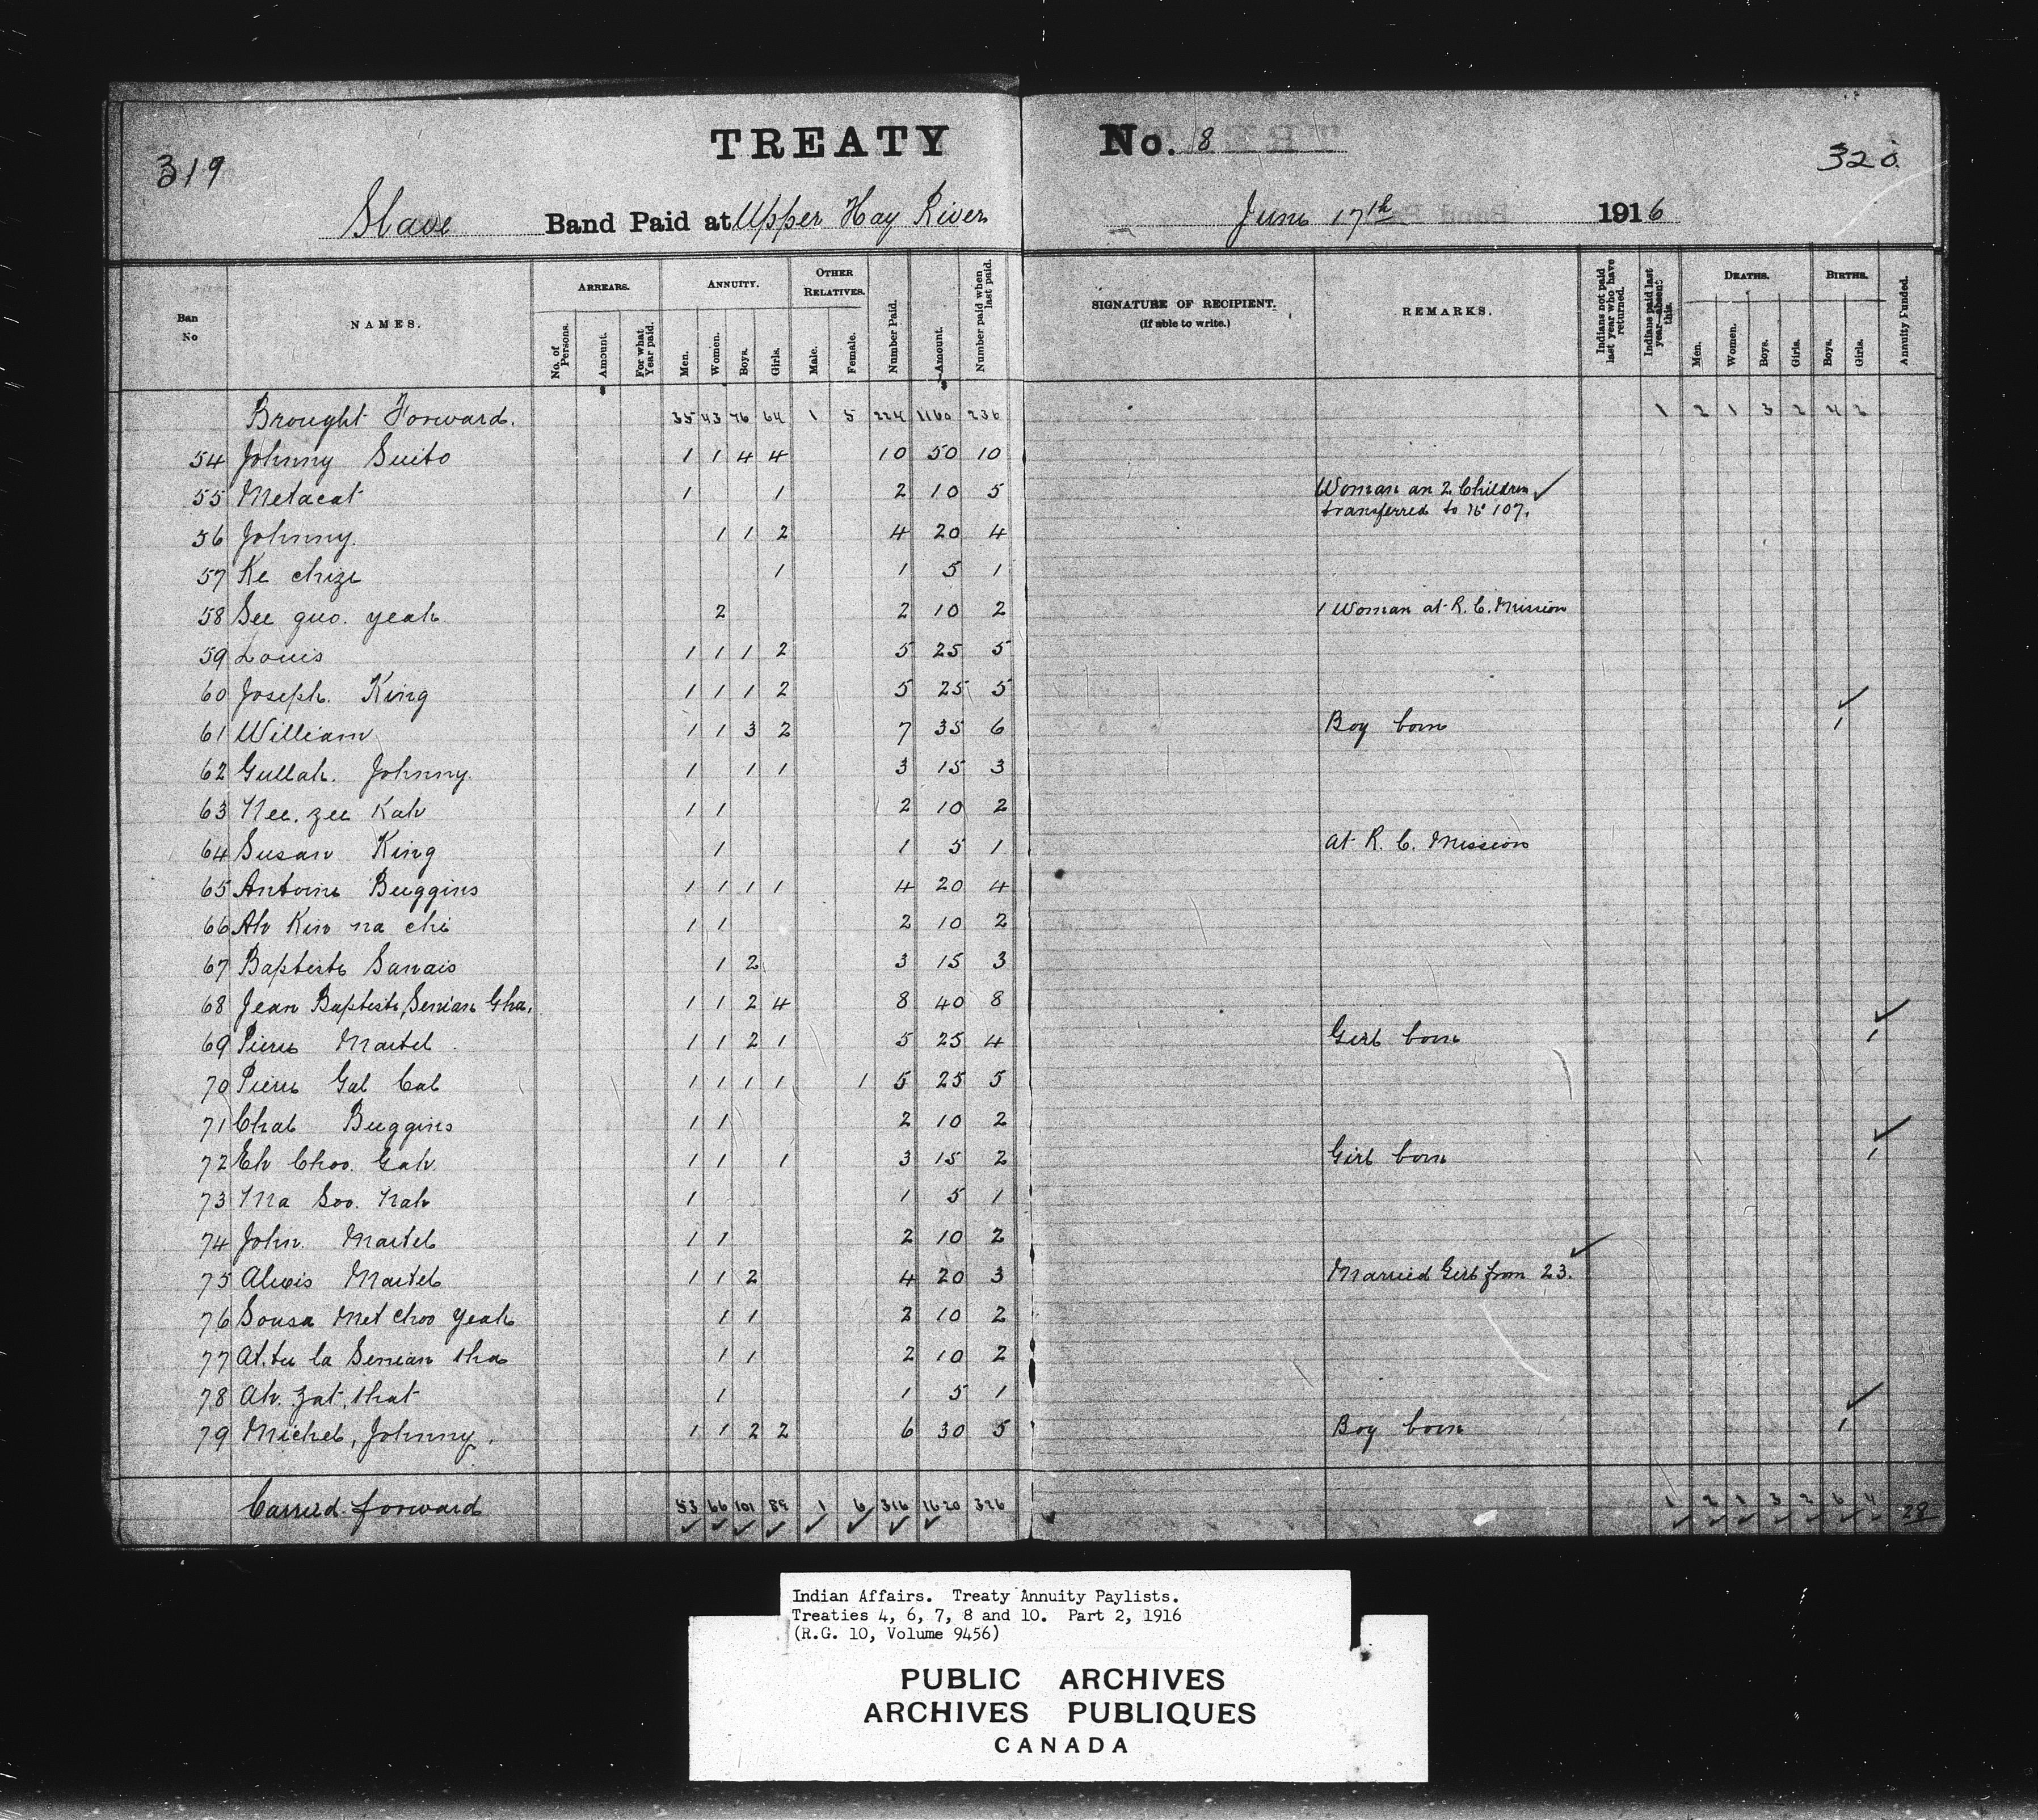 TREATY No. 8
319
320
Slave Band Paid at Upper Hay River June 17th 1916
Ban No
NAMES.
ARREARS.
No. of Persons.
Amount.
For what Year paid.
ANNUITY.
Men.
Women.
Boys.
Girls.
OTHER RELATIVES.
Male.
Female.
Number Paid.
Amount.
Number paid when last paid.
SIGNATURE OF RECIPIENT.
(If able to write.)
REMARKS.
Indians not paid last year who have returned.
Indians paid last year—absent this.
DEATHS.
Men.
Women.
Boys.
Girls.
BIRTHS.
Boys.
Girls.
Annuity Funded.
Brought Forward. 35 43 76 64 1 5 224 1160 236 1 2 1 3 2 4 2
54 Johnny Suito 1 1 4 4 10 50 10
55 Metacat 1 1 2 10 5 Woman an 2 Children ✓
transferred to No 107.
56 Johnny. 1 1 2 4 20 4
57 Ke chize 1 1 5 1
58 See quo. yeah 2 2 10 2 1 Woman at R. C. Mission
59 Louis 1 1 1 2 5 25 5
60 Joseph. King 1 1 1 2 5 25 5
61 William 1 1 3 2 7 35 6 Boy born 1 ✓
62 Gullah. Johnny. 1 1 1 3 15 3
63 Nee. zee Kah 1 1 2 10 2
64 Susan King 1 1 5 1 at R. C. Mission
65 Antoine Buggins 1 1 1 1 4 20 4
66 Ah Kin na chi 1 1 2 10 2
67 Baptiste Sanais 1 2 3 15 3
68 Jean Baptiste, Senian Gha. 1 1 2 4 8 40 8
69 Pierre Martel 1 1 2 1 5 25 4 Girl born 1 ✓
70 Pierre Gal Cal 1 1 1 1 1 5 25 5
71 Chal Buggins 1 1 2 10 2
72 Eh Choo. Gah 1 1 1 3 15 2 Girl born 1 ✓
73 Ma Soo. Nah 1 1 5 1
74 John. Martel 1 1 2 10 2
75 Alexis Martel 1 1 2 4 20 3 Married Girl from 23. ✓
76 Sousa Met choo yeah 1 1 2 10 2
77 At.tu la Senian tha 1 1 2 10 2
78 Ah. zat. that 1 1 5 1
79 Michel, Johnny. 1 1 2 2 6 30 5 Boy born 1 ✓
Carried forward 53 66 101 89 1 6 316 1620 326 1 2 1 3 2 6 4 28
Indian Affairs. Treaty Annuity Paylists.
Treaties 4, 6, 7, 8 and 10. Part 2, 1916
(R.G. 10, Volume 9456)
PUBLIC ARCHIVES
ARCHIVES PUBLIQUES
CANADA